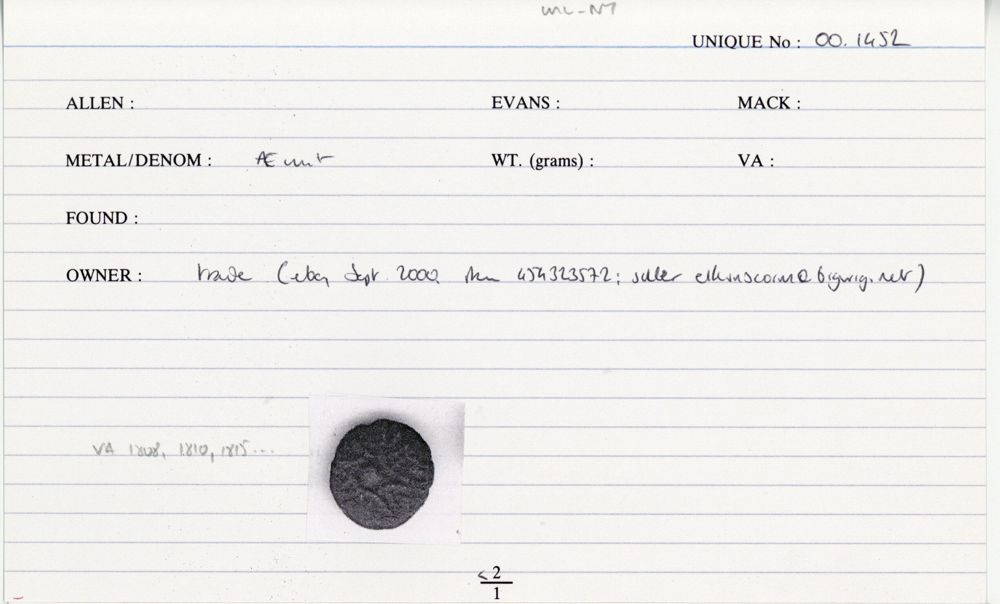 UNIQUE No : 00.1452
ALLEN : EVANS : MACK :
METAL/DENOM : Æ unit WT. (grams) : VA :
FOUND :
OWNER : trade (ebay Sept 2000 item 454323572; seller elkinscoins@bigwig.net)
VA 1808, 1810, 1815...
< 2
1